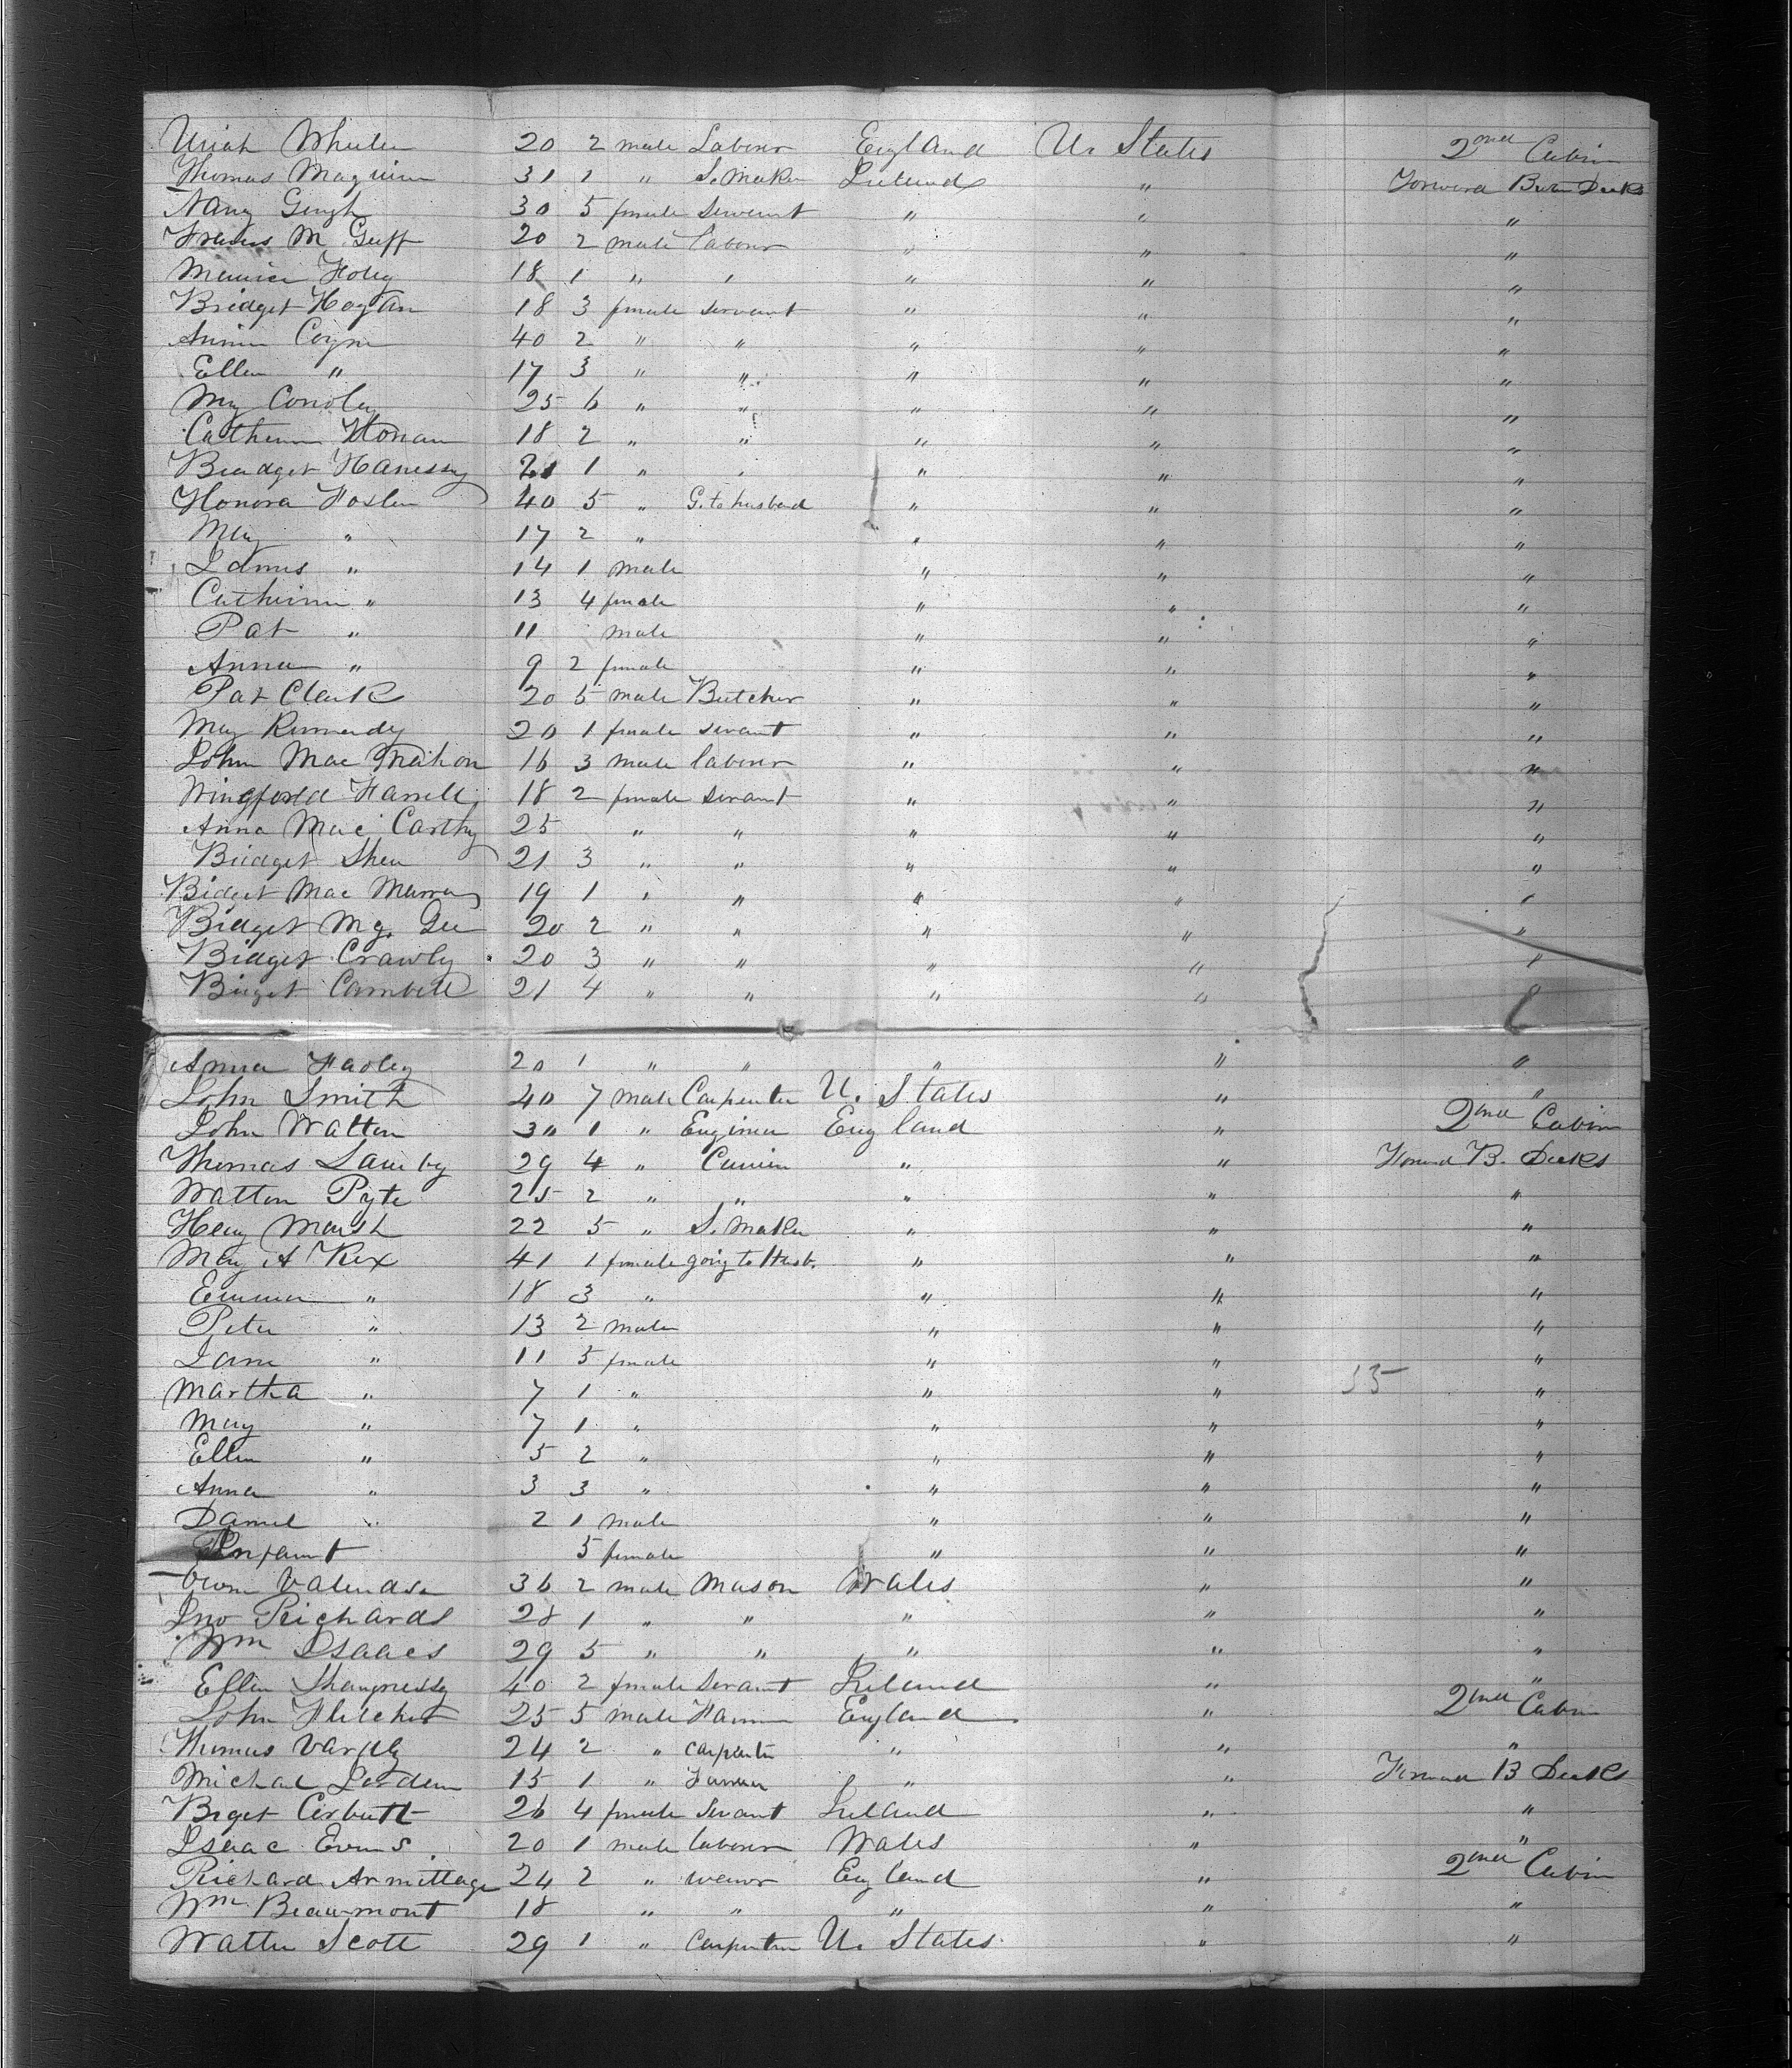 Uriah Wheeler 20 2 male Labour England U. States 2nd Cabin
Thomas Maguire 31 1 " S. Maker Ireland " Forward Betn Decks
Nany Geugh 30 5 female servant " " "
Frances Mc Guff 20 2 male labour " " "
Maurice Foley 18 1 " " " " "
Bridget Hogan 18 3 female servant " " "
Annie Coyne 40 2 " " " " "
Ellen " 17 3 " " " " "
My Conoley 25 6 " " " " "
Catherine Honan 18 2 " " " " "
Beadget Hanessy 20 1 " " " " "
Honora Foslen 40 5 " G. to husband " " "
May " 17 2 " " " "
James " 14 1 male " " "
Catherine " 13 4 female " " "
Pat " 11 male " " "
Anna " 9 2 female " " "
Pat Clark 20 5 male Butcher " " "
May Kennedy 20 1 female servant " " "
John Mac Mahon 16 3 male labour " " "
Wingford Farrell 18 2 female servant " " "
Anna Mac Carthy 25 " " " " "
Bridget Shea 21 3 " " " " "
Bidget Mac Murray 19 1 " " " " "
Bidget Mg. Gee 20 2 " " " " "
Bidget Crawly 20 3 " " " " "
Birget Cambell 21 4 " " " " "
Anna Faoley 20 1 " " " " "
John Smith 40 7 male Carpenter U. States " "
John Watton 30 1 " Engineer England " 2nd Cabin
Thomas Lamby 29 4 " Currier " " Forward B. Decks
Watton Pyte 25 2 " " " " "
Heny Marsh 22 5 " S. Maker " " "
May A Rex 41 1 female going to Husb. " " "
Emma " 18 3 " " " "
Peter " 13 2 male " " "
Jane " 11 5 female " " "
Martha " 7 1 " " " 35 "
May " 7 1 " " " "
Ellen " 5 2 " " " "
Anna " 3 3 " " " "
Daniel " 2 1 male " " "
Infaunt 5 female " " "
Owen 36 2 male Mason Wales " "
Jno Richards 28 1 " " " " "
Wm Isaacs 29 5 " " " " "
Ellen Shaugnessy 40 2 female servant Ireland " "
John Fletcher 25 5 male Farmer England " 2nd Cabin
Thomas Varely 24 2 " carpenter " " "
Michael Lorden 15 1 " Farmer " " Forward B Decks
Biget Corbutt 26 4 female servant Ireland " "
Isaac Evans 20 1 male labour Wales " "
Richard Armittage 24 2 " weaver England " 2nd Cabin
Wm Beaumont 18 " " " " "
Watter Scott 29 1 " Carpenter U. States " "